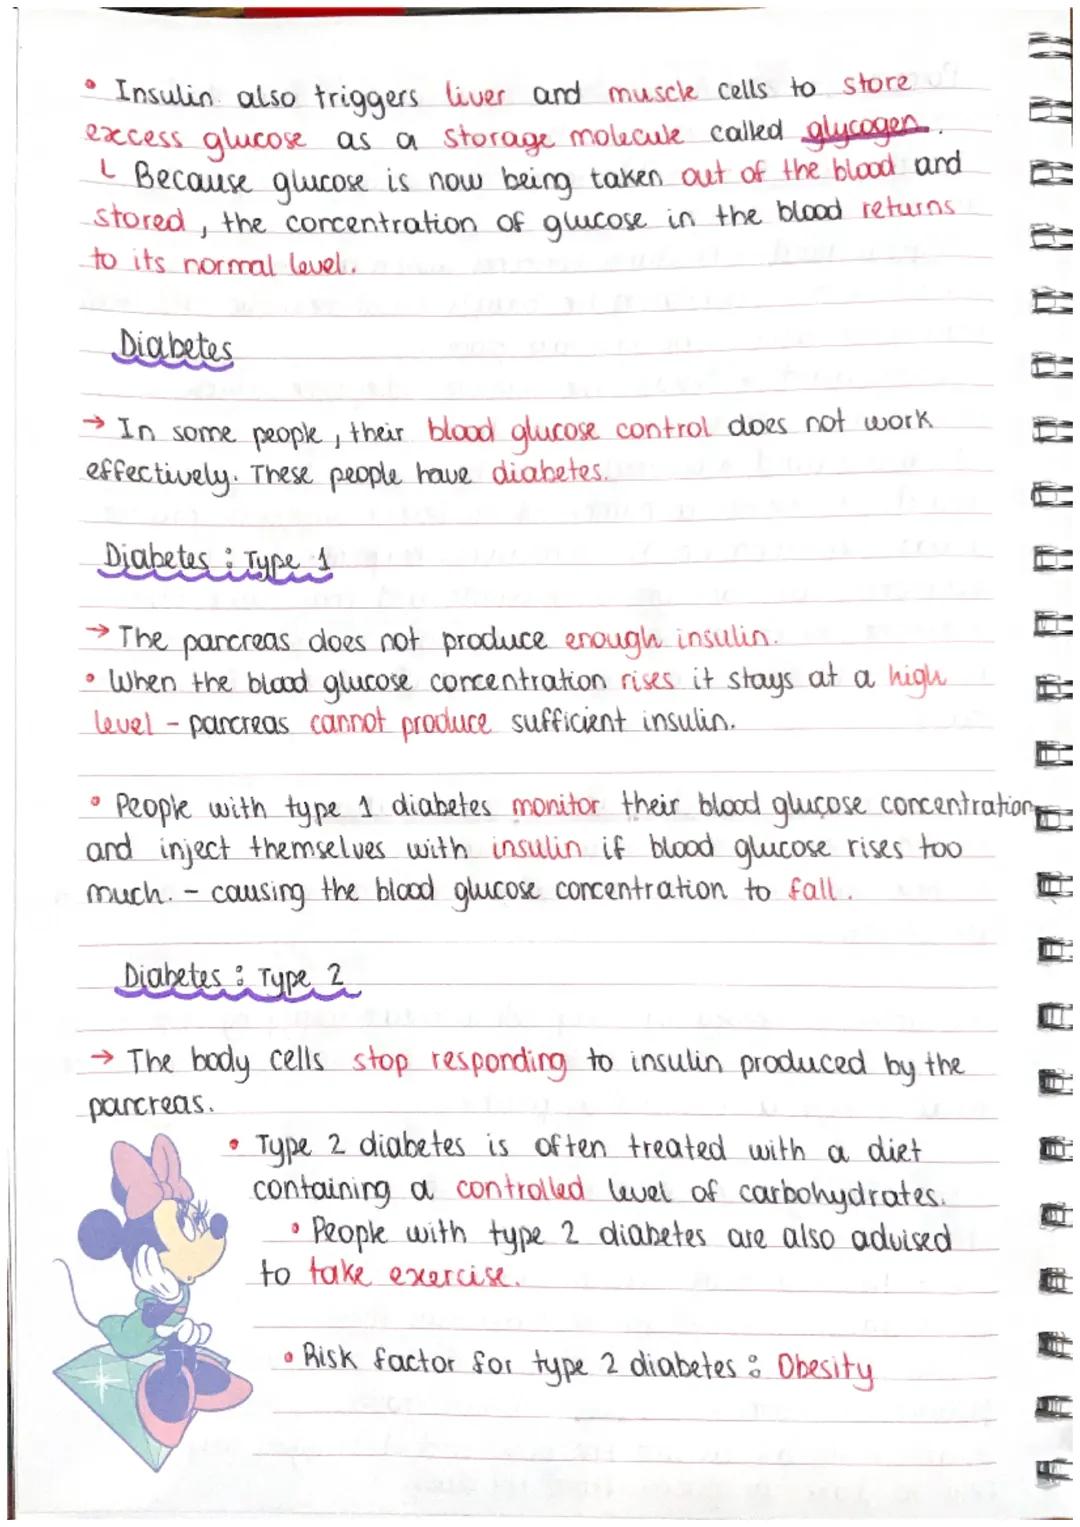 • Insulin also triggers liver and muscle cells to store
excess glucose as a storage molecule called glycogen.
Because glucose is now being taken out of the blood and
stored, the concentration of glucose in the blood returns
to its normal level.
Diabetes
→ In some people, their blood glucose control does not work
effectively. These people have diabetes.
Diabetes : Type 1
→ The pancreas does not produce enough insulin.
• When the blood glucose concentration rises it stays at a high
level - pancreas cannot produce sufficient insulin.
• People with type 1 diabetes monitor their blood glucose concentration
and inject themselves with insulin if blood glucose rises too
much. - causing the blood glucose concentration to fall.
Diabetes : Type 2
→ The body cells stop responding to insulin produced by the
pancreas.
• Type 2 diabetes is often treated with a diet
containing a controlled level of carbohydrates.
• People with type 2 diabetes are also advised
to take exercise.
• Risk factor for type 2 diabetes : Obesity